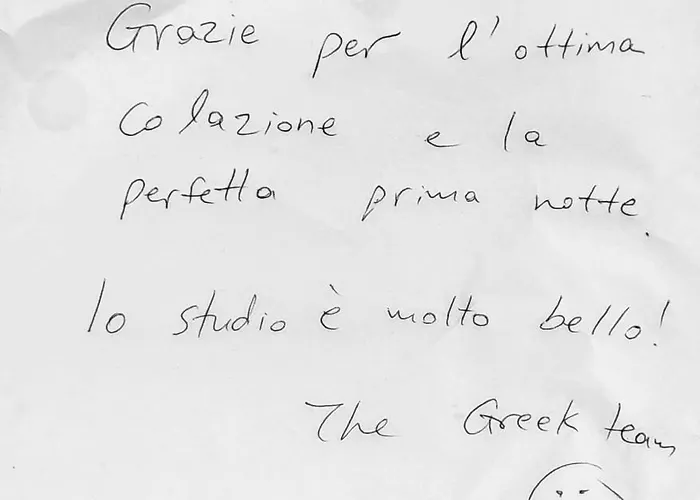 Grazie per l'ottima
colazione e la
perfetta prima notte.
lo studio è molto bello!
The Greek team